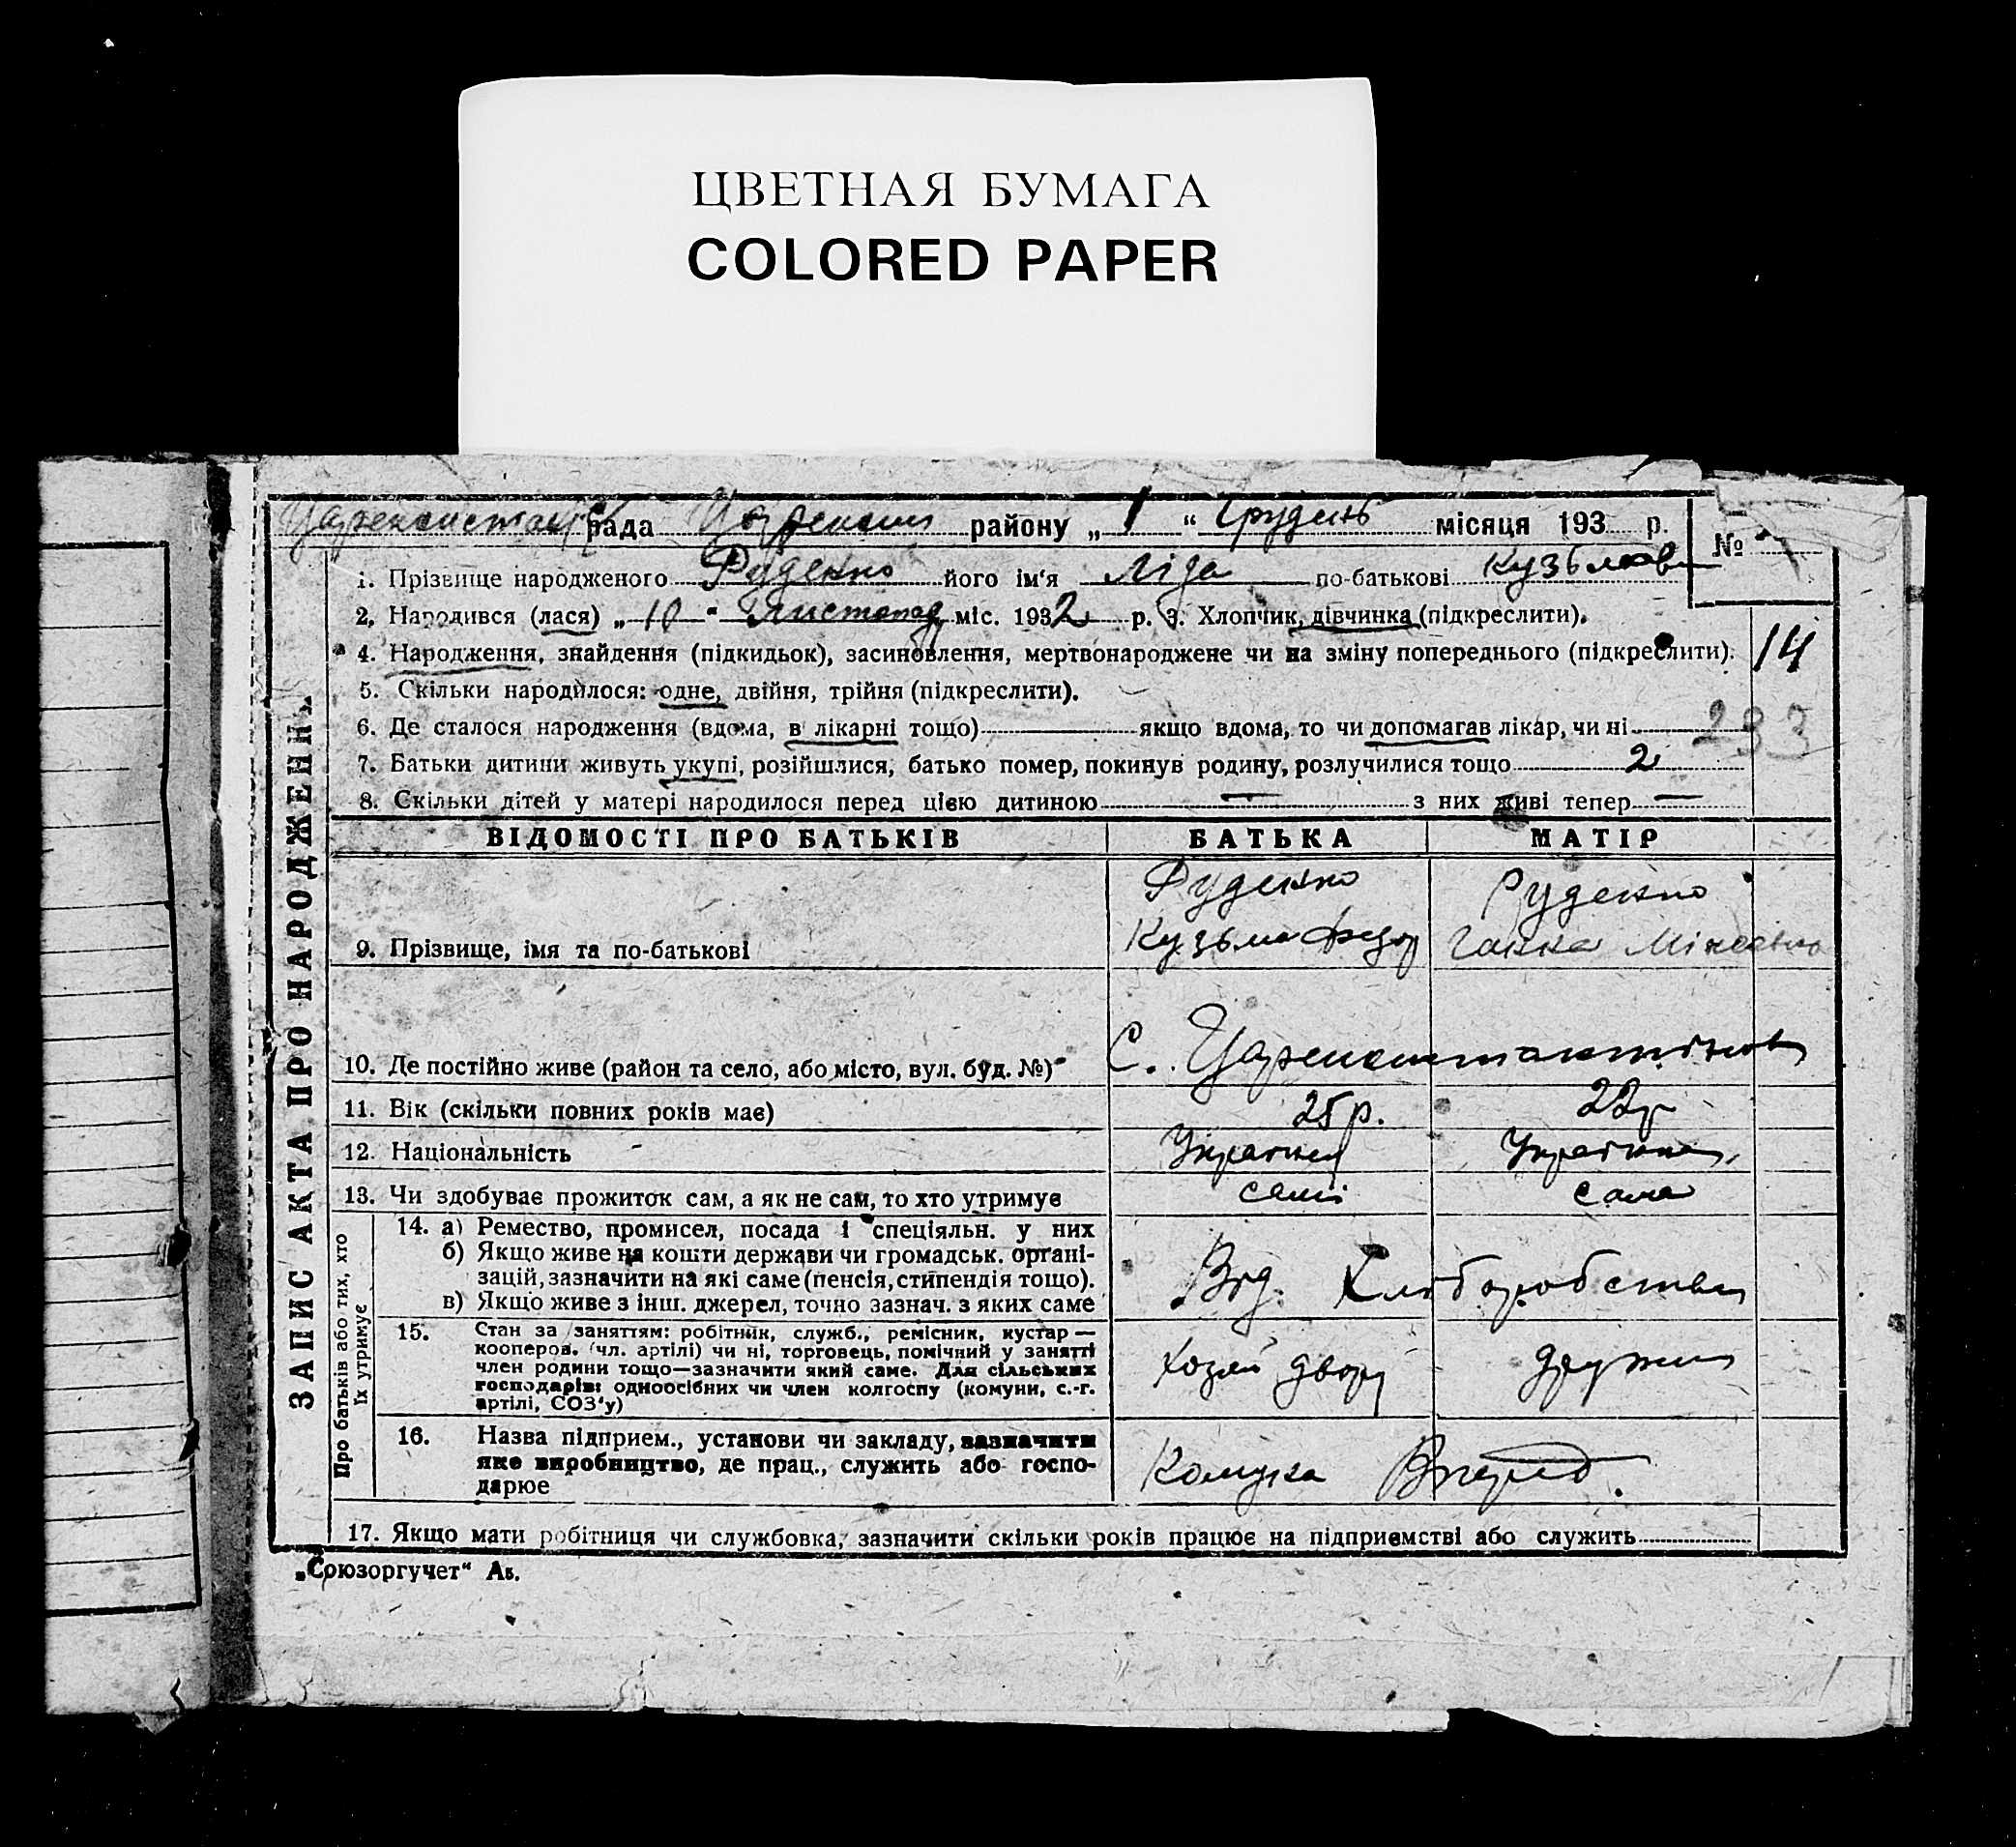 ЦВЕТНАЯ БУМАГА
COLORED PAPER
рада району „ 1 “ Грудень місяця 193 р. №
1. Прізвище народженого Руденко його ім'я Ліза по-батькові Кузьмовн
2. Народився (лася) „ 10 " Листопад міс. 1932 р. 3. Хлопчик, дівчинка (підкреслити).
4. Народження, знайдення (підкидьок), засиновлення, мертвонароджене чи на зміну попереднього (підкреслити). 14
5. Скільки народилося: одне, двійня, трійня (підкреслити).
6. Де сталося народження (вдома, в лікарні тощо) якщо вдома, то чи допомагав лікар, чи ні 233
7. Батьки дитини живуть укупі, розійшлися, батько помер, покинув родину, розлучилися тощо 2
8. Скільки дітей у матері народилося перед цією дитиною — з них живі тепер —
ВІДОМОСТІ ПРО БАТЬКІВ БАТЬКА МАТІР
Руденко Руденко
9. Прізвище, імя та по-батькові Кузьма Федор Ганна
10. Де постійно живе (район та село, або місто, вул. буд. №) С. Царекостянтинов
11. Вік (скільки повних років має) 25 р. 22 р
12. Національність
13. Чи здобуває прожиток сам, а як не сам, то хто утримує сам сама
14. а) Ремество, промисел, посада і спеціяльн. у них
б) Якщо живе на кошти держави чи громадськ. органі-
зацій, зазначити на які саме (пенсія, стипендія тощо).
в) Якщо живе з інш. джерел, точно зазнач. з яких саме
Від. Хліборобства
15. Стан за заняттям: робітник, служб., ремісник, кустар —
кооперов. (чл. артілі) чи ні, торговець, помічний у занятті
член родини тощо—зазначити який саме. Для сільських
господарів: одноосібних чи член колгоспу (комуни, с.-г.
артілі, СОЗ'у)
хозяй двору дружина
16. Назва підприєм., установи чи закладу, зазначити
яке виробництво, де прац., служить або госпо-
дарює
Комуна Вперед.
17. Якщо мати робітниця чи службовка, зазначити скільки років працює на підприємстві або служить
„Союзоргучет“
ЗАПИС АКТА ПРО НАРОДЖЕНН
Про батьків або тих, хто
їх утримує